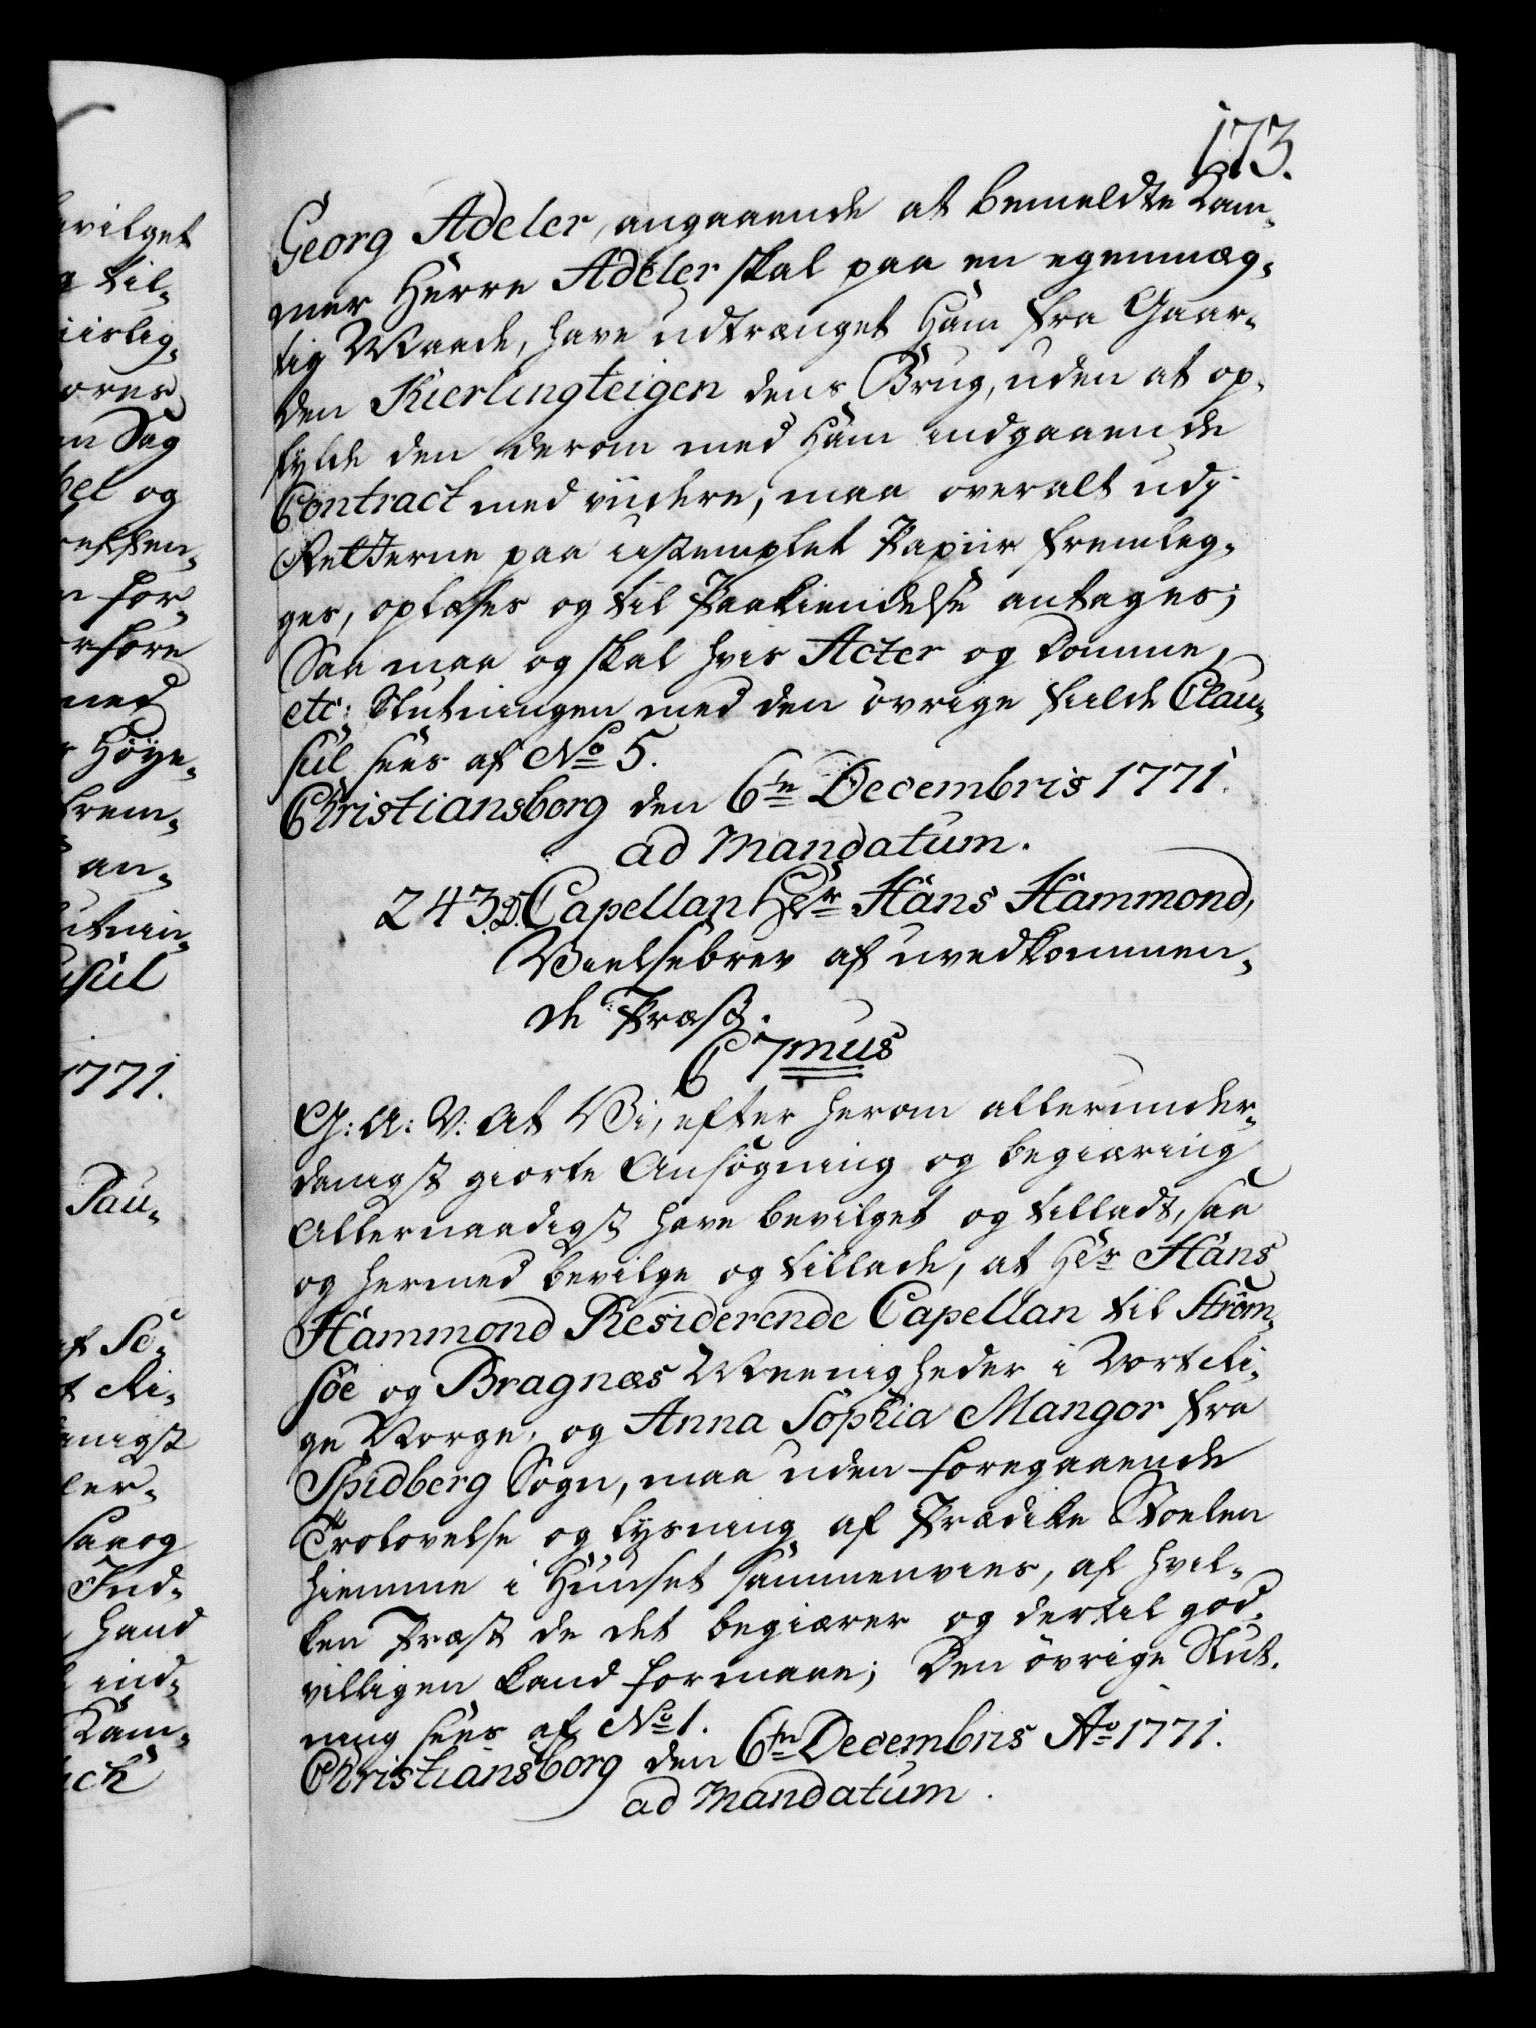 173.
Georg Adeler, angaaende at bemeldte Kam-
mer Herre Adeler skal paa en egenmæg-
tig Maade, have udtrænget Ham fra Gaar-
den Kierlingteigen dens Brug, uden at op-
fylde den derom med Ham indgaaende
Contract med viidere, maa overalt udj
Retterne paa ustemplet Papiir fremleg-
ges, oplæses og til Paakiendelse antages;
Saa maa og skal hvis Acter og Domme,
etc: Slutningen med den övrige fulde Clau-
sul sees af No 5.
Christiansborg den 6te Decembris 1771.
ad Mandatum.
243. D. Capellan Hr Hans Hammond,
Vielsebrev af uvedkommen-
de Præst.
C 7mus
G: A: V: At Vi, efter herom allerunder-
danigst giorte Ansögning og begiæring
Allernaadigst have bevilget og tilladt, saa
og hermed bevilge og tillade, at Hr Hans
Hammond Residerende Capellan til Ström-
söe og Bragnæs Meenigheder i Vort Ri-
ge Norge, og Anna Sophia Mangor fra
Spidberg Sogn, maa uden foregaaende
Trolovelse og lysning af Prædike Stoelen
hiemme i Huuset sammenvies, af hvil-
ken Præst de det begiærer og dertil god-
villigen kand formaae; Den övrige Slut-
ning sees af No 1.
Christiansborg den 6te Decembris Ao 1771.
ad Mandatum.